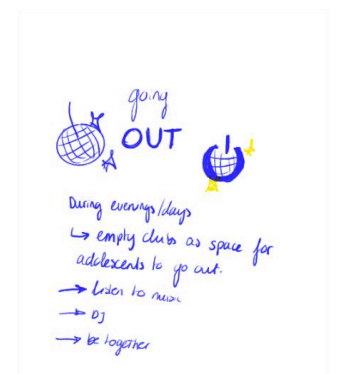 going
OUT
During evenings/days
↳ empty clubs as space for
adolescents to go out.
→ listen to music
→ DJ
→ be together